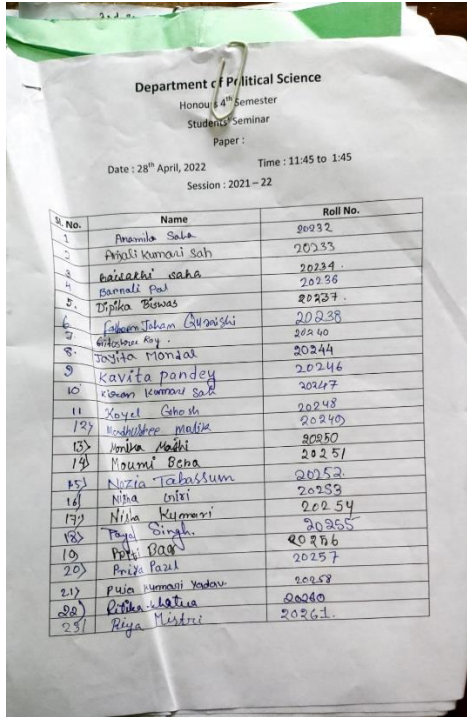 Department of Political Science
Honours 4th Semester
Students' Seminar
Paper :
Date : 28th April, 2022 Time : 11:45 to 1:45
Session : 2021 – 22
Sl. No. Name Roll No.
1 Anamika Saha 20232
2 Anjali Kumari Sah 20233
3 Baisakhi saha 20234.
4 Barnali Pal 20236
5. Dipika Biswas 20237.
6 Jaham Quraishi 20238
7. Roy. 20240
8. Jayita Mondal 20244
9 Kavita pandey 20246
10 Kiran Kumari Sah 20247
11 Koyel Ghosh 20248
12) Madhushree Malik 20249
13) Monika Majhi 20250
14) Moumi Bera 20251
15) Nozia Tabassum 20252.
16) Nisha 20253
17) Nisha Kumari 20254
18) Payal Singh. 20255
19 Bag 20256
20) Priya Patel 20257
21) Puja Kumari Yadav. 20258
22) Ritika khatua 20260
23) Riya Mistri 20261.